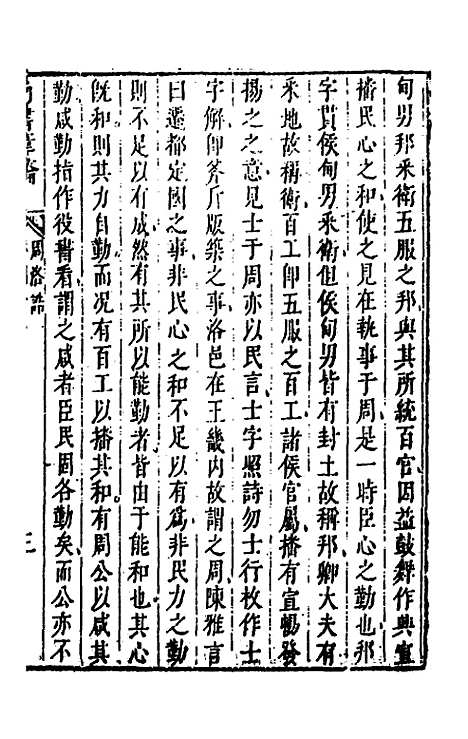 甸男邦采衛五服之邦與其所統百官因益鼓舞作興宣
播民心之和使之見在執事于周是一時臣心之勤也邦
字貫侯甸男采衛但侯甸男皆有封土故稱邦卿大夫有
采地故稱衛百工卽五服之百工諸侯官屬播有宣暢發
揚之之意見士于周亦以民言士字照詩勿士行枚作士
字解卽斧斤版築之事洛邑在王畿内故謂之周陳雅言
曰遷都定國之事非民心之和不足以有為非民力之勤
則不足以有成然有其所以能勤者皆由于能和也其心
旣和則其力自勤而况有百工以播其和有周公以咸其
勤咸勤指作役稽看謂之咸者臣民固各勤矣而公亦不
尚書
周洛誥
三